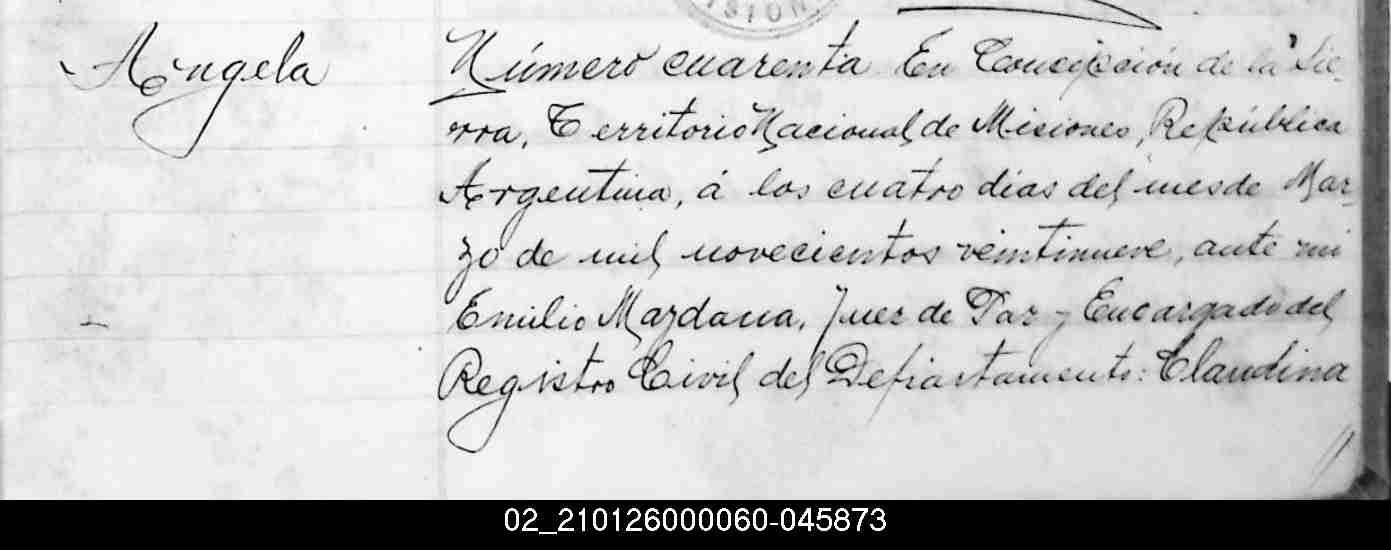 ISION
Angela
Número cuarenta En Concepción de la Sie-
rra, Territorio Nacional de Misiones, República
Argentina, á los cuatro dias del mes de Mar-
zo de mil novecientos veintinueve, ante mi
Emilio Mazdana, Juez de Paz y Encargado del
Registro Civil del Departamento: Claudina
02_210126000060-045873